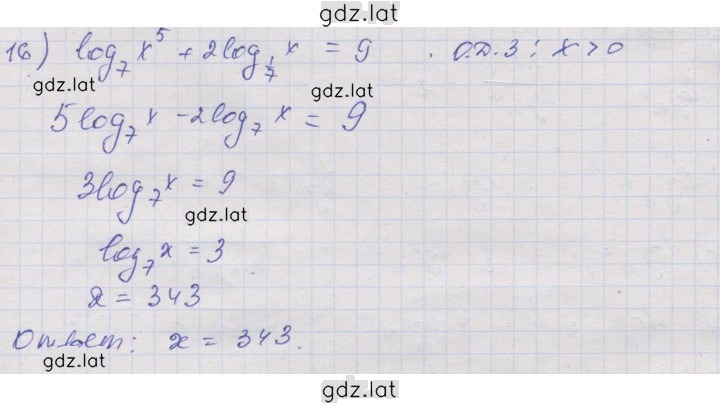 gdz.lat
16) log₇ x⁵ + 2log_{1/7} x = 9 . О.Д.З: x > 0
gdz.lat gdz.lat
5log₇ x - 2log₇ x = 9
3log₇ x = 9
gdz.lat
log₇ x = 3
x = 343
Ответ: x = 343.
gdz.lat
gdz.lat